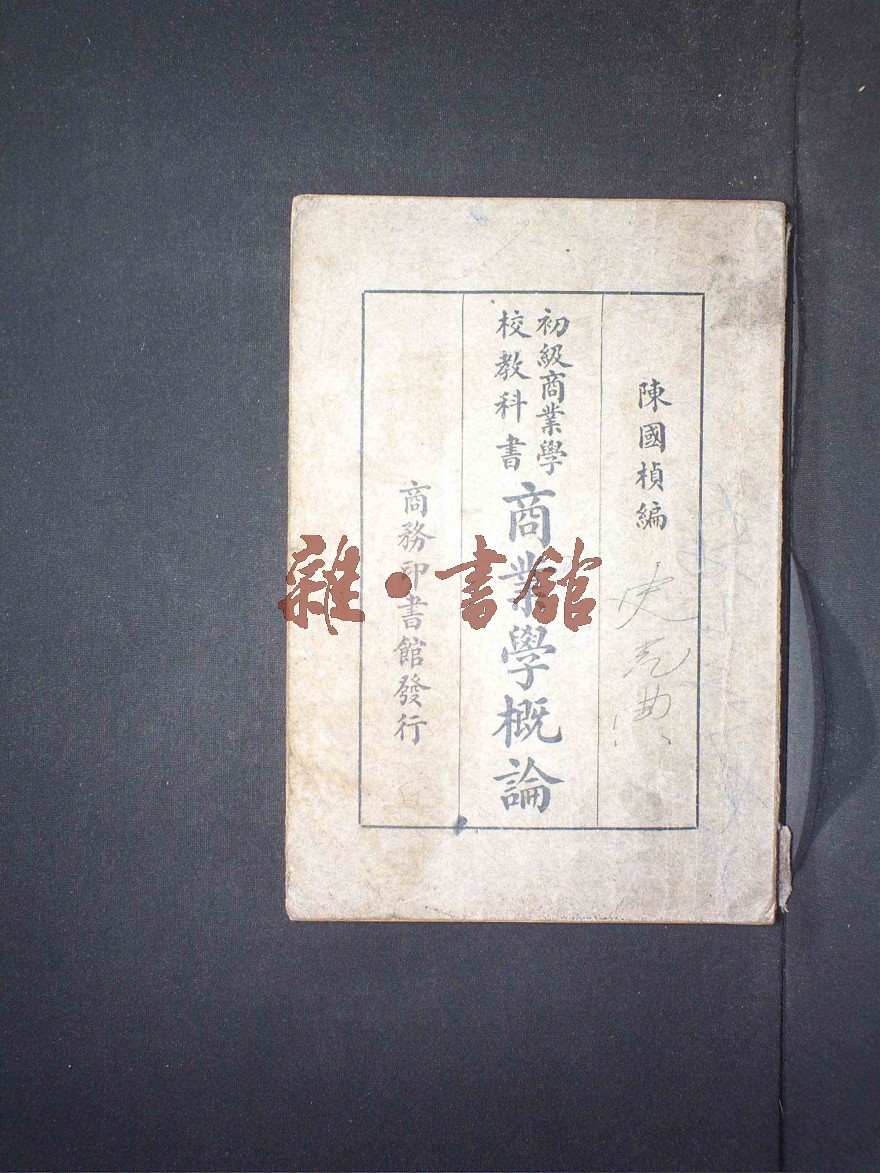 陳國楨編
初級商業學
校教科書
商業學概論
商務印書館發行
雜·書館